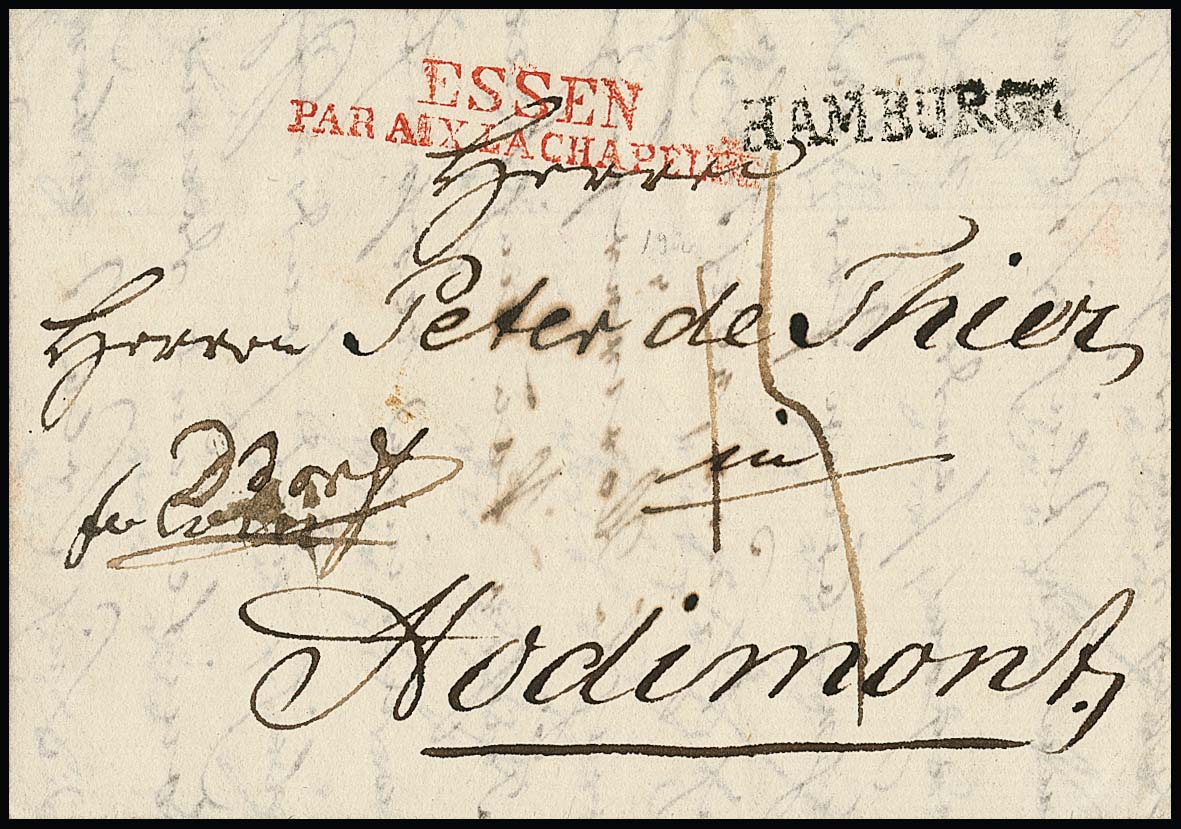 ESSEN
PAR AIX LA CHAPELLE
HAMBURG
Herrn
Herrn Peter de Thier,
in
Hodimont.